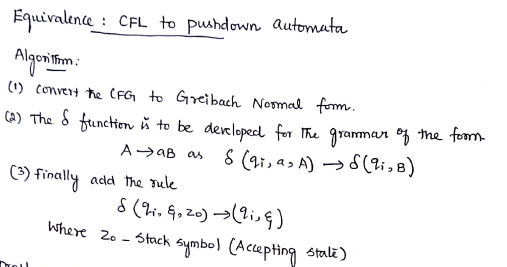 Equivalence : CFL to pushdown automata
Algorithm:
(1) Convert the CFG to Greibach Normal form.
(2) The δ function is to be developed for The grammar of the form
A → aB as δ (qi, a, A) → δ(qi, B)
(3) finally add the rule
δ (qi, ε, z0) → (qi, ε)
Where z0 - Stack symbol (Accepting state)